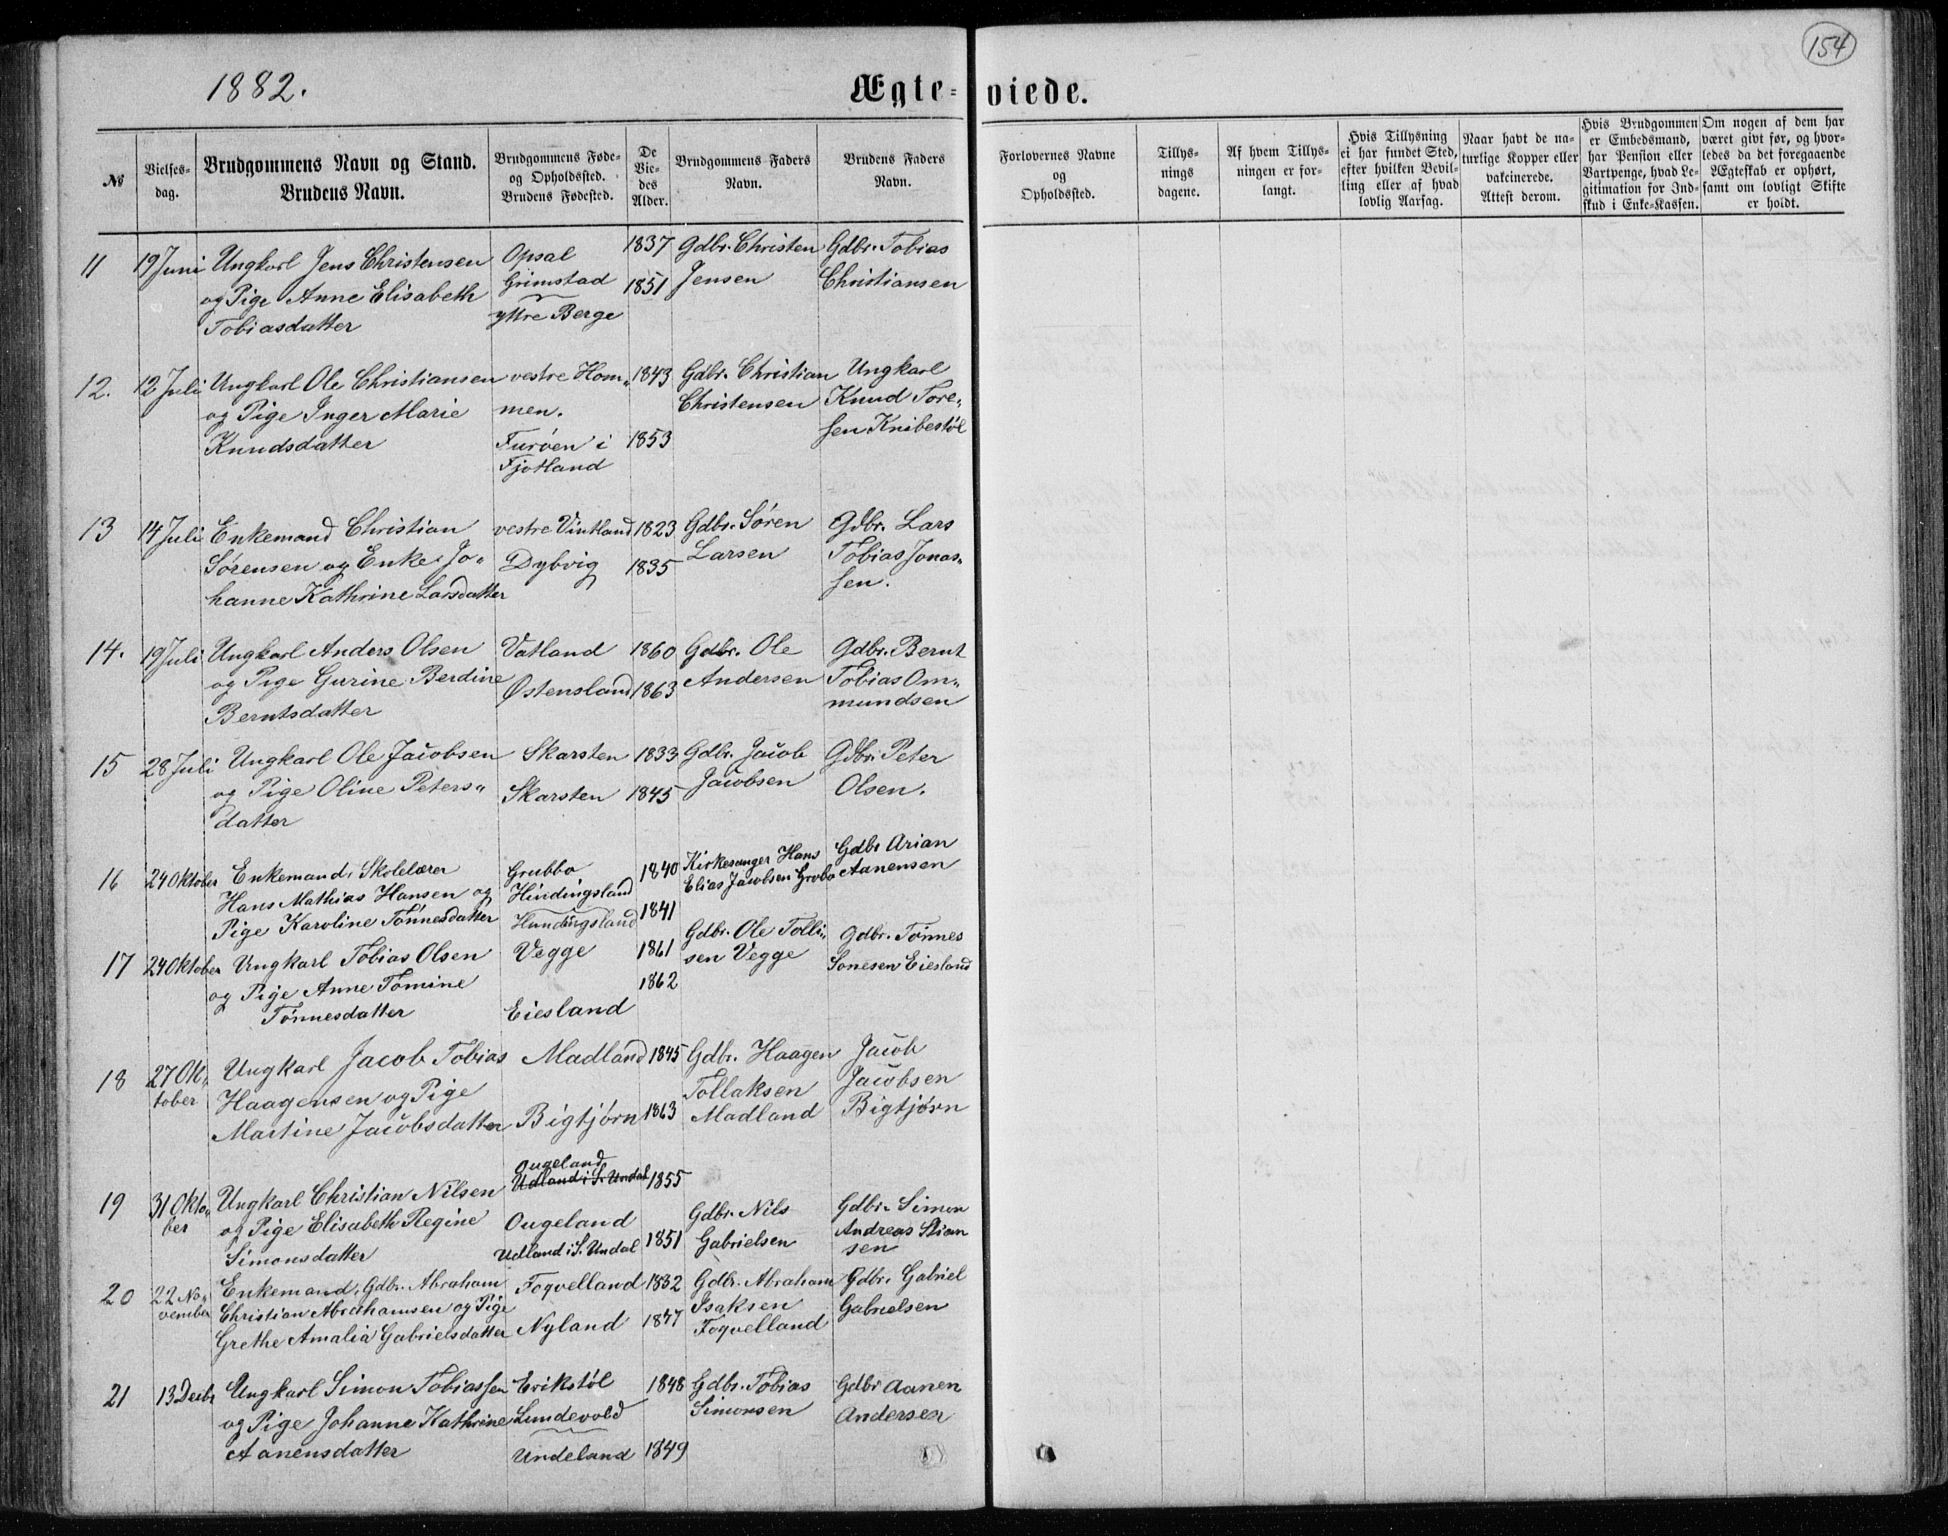 154
1882.
Ægte-viede.
№
Vielses-
dag.
Brudgommens Navn og Stand.
Brudens Navn.
Brudgommens Føde-
og Opholdssted.
Brudens Fødested.
De
Vie-
des
Alder.
Brudgommens Faders
Navn.
Brudens Faders
Navn.
Forlovernes Navne
og
Opholdssted.
Tillys-
nings
dagene.
Af hvem Tillys-
ningen er for-
langt.
Hvis Tillysning
ei har fundet Sted,
efter hvilken Bevil-
ling eller af hvad
lovlig Aarsag.
Naar havt de na-
turlige Kopper eller
vakcinerede.
Attest derom.
Hvis Brudgommen
er Embedsmand,
har Pension eller
Vartpenge, hvad Le-
gitimation for Ind-
skud i Enke-Kassen.
Om nogen af dem har
været givt før, og hvor-
ledes da det foregaaende
Ægteskab er ophørt,
samt om lovligt Skifte
er holdt.
11
19 Juni
Ungkarl Jens Christensen
og Pige Anne Elisabeth
Tobiasdatter
Opsal
Grimstad
yttre Berge
1837
1851
Gdbr. Christen
Jensen
Gdbr. Tobias
Christiansen
12.
12 Juli
Ungkarl Ole Christiansen
og Pige Inger Marie
Knudsdatter
vestre Hom„
men.
Furöen i
Fjotland
1843
1853
Gdbr. Christian
Christensen
Ungkarl
Knud Tore„
sen Knibestöl
13
14 Juli
Enkemand Christian
Sørensen og Enke Jo„
hanne Kathrine Larsdatter
vestre Vintland
Dybvig
1823
1835
Gdbr. Søren
Larsen
Gdbr. Lars
Tobias Jonas„
sen.
14.
19 Juli
Ungkarl Anders Olsen
og Pige Gurine Berdine
Berntsdatter
Vatland
Østensland
1860
1863
Gdbr. Ole
Andersen
Gdbr. Bernt
Tobias Om„
mundsen
15
28 Juli
Ungkarl Ole Jacobsen
og Pige Oline Peters„
datter
Skarsten
Skarsten
1833
1845
Gdbr. Jacob
Jacobsen
Gdbr. Peter
Olsen.
16
24 Oktober
Enkemand, Skolelærer
Hans Mathias Hansen og
Pige Karoline Tönnesdatter
Grubbo
Hindingsland
Hundingsland
1840
1841
Kirkesanger Hans
Elias Jacobsen Grobo
Gdbr Arian
Aanensen
17
24 Oktober
Ungkarl Tobias Olsen
og Pige Anne Tomine
Tönnesdatter
Vegge
Eiesland
1861
1862
Gdbr. Ole Tolli„
sen Vegge
Gdbr. Tönnes
Sonesen Eiesland
18
27 Ok„
tober
Ungkarl Jacob Tobias
Haagensen og Pige
Martine Jacobsdatter
Madland
Bigtjørn
1845
1863
Gdbr. Haagen
Tollaksen
Madland
Jacob
Jacobsen
Bigtjørn
19
31 Okto„
ber
Ungkarl Christian Nilsen
og Pige Elisabeth Regine
Simonsdatter
Ougeland
Udland i S. Undal
Ougeland
Udland i S. Undal
1855
1851
Gdbr. Nils
Gabrielsen
Gdbr. Simon
Andreas Stian
sen
20
22 No„
vember
Enkemand, Gdbr. Abraham
Christian Abrahamsen og Pige
Grethe Amalia Gabrielsdatter
Foqvelland
Nyland
1832
1847
Gdbr. Abraham
Isaksen
Foqvelland
Gdbr. Gabriel
Gabrielsen
21
13 Decbr
Ungkarl Simon Tobiassen
og Pige Johanne Kathrine
Aanensdatter
Erikstöl
Lundevold
Undeland
1848
1849
Gdbr. Tobias
Simonsen
Gdbr Aanen
Andersen